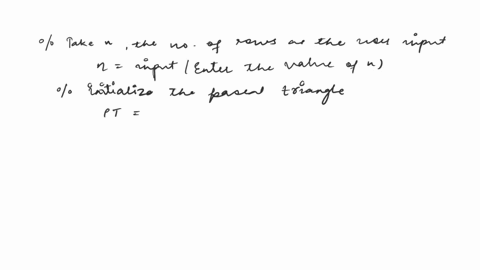 % Take n, the no. of rows as the user input
n = input (Enter the value of n)
% Initialize the pascal triangle
PT =